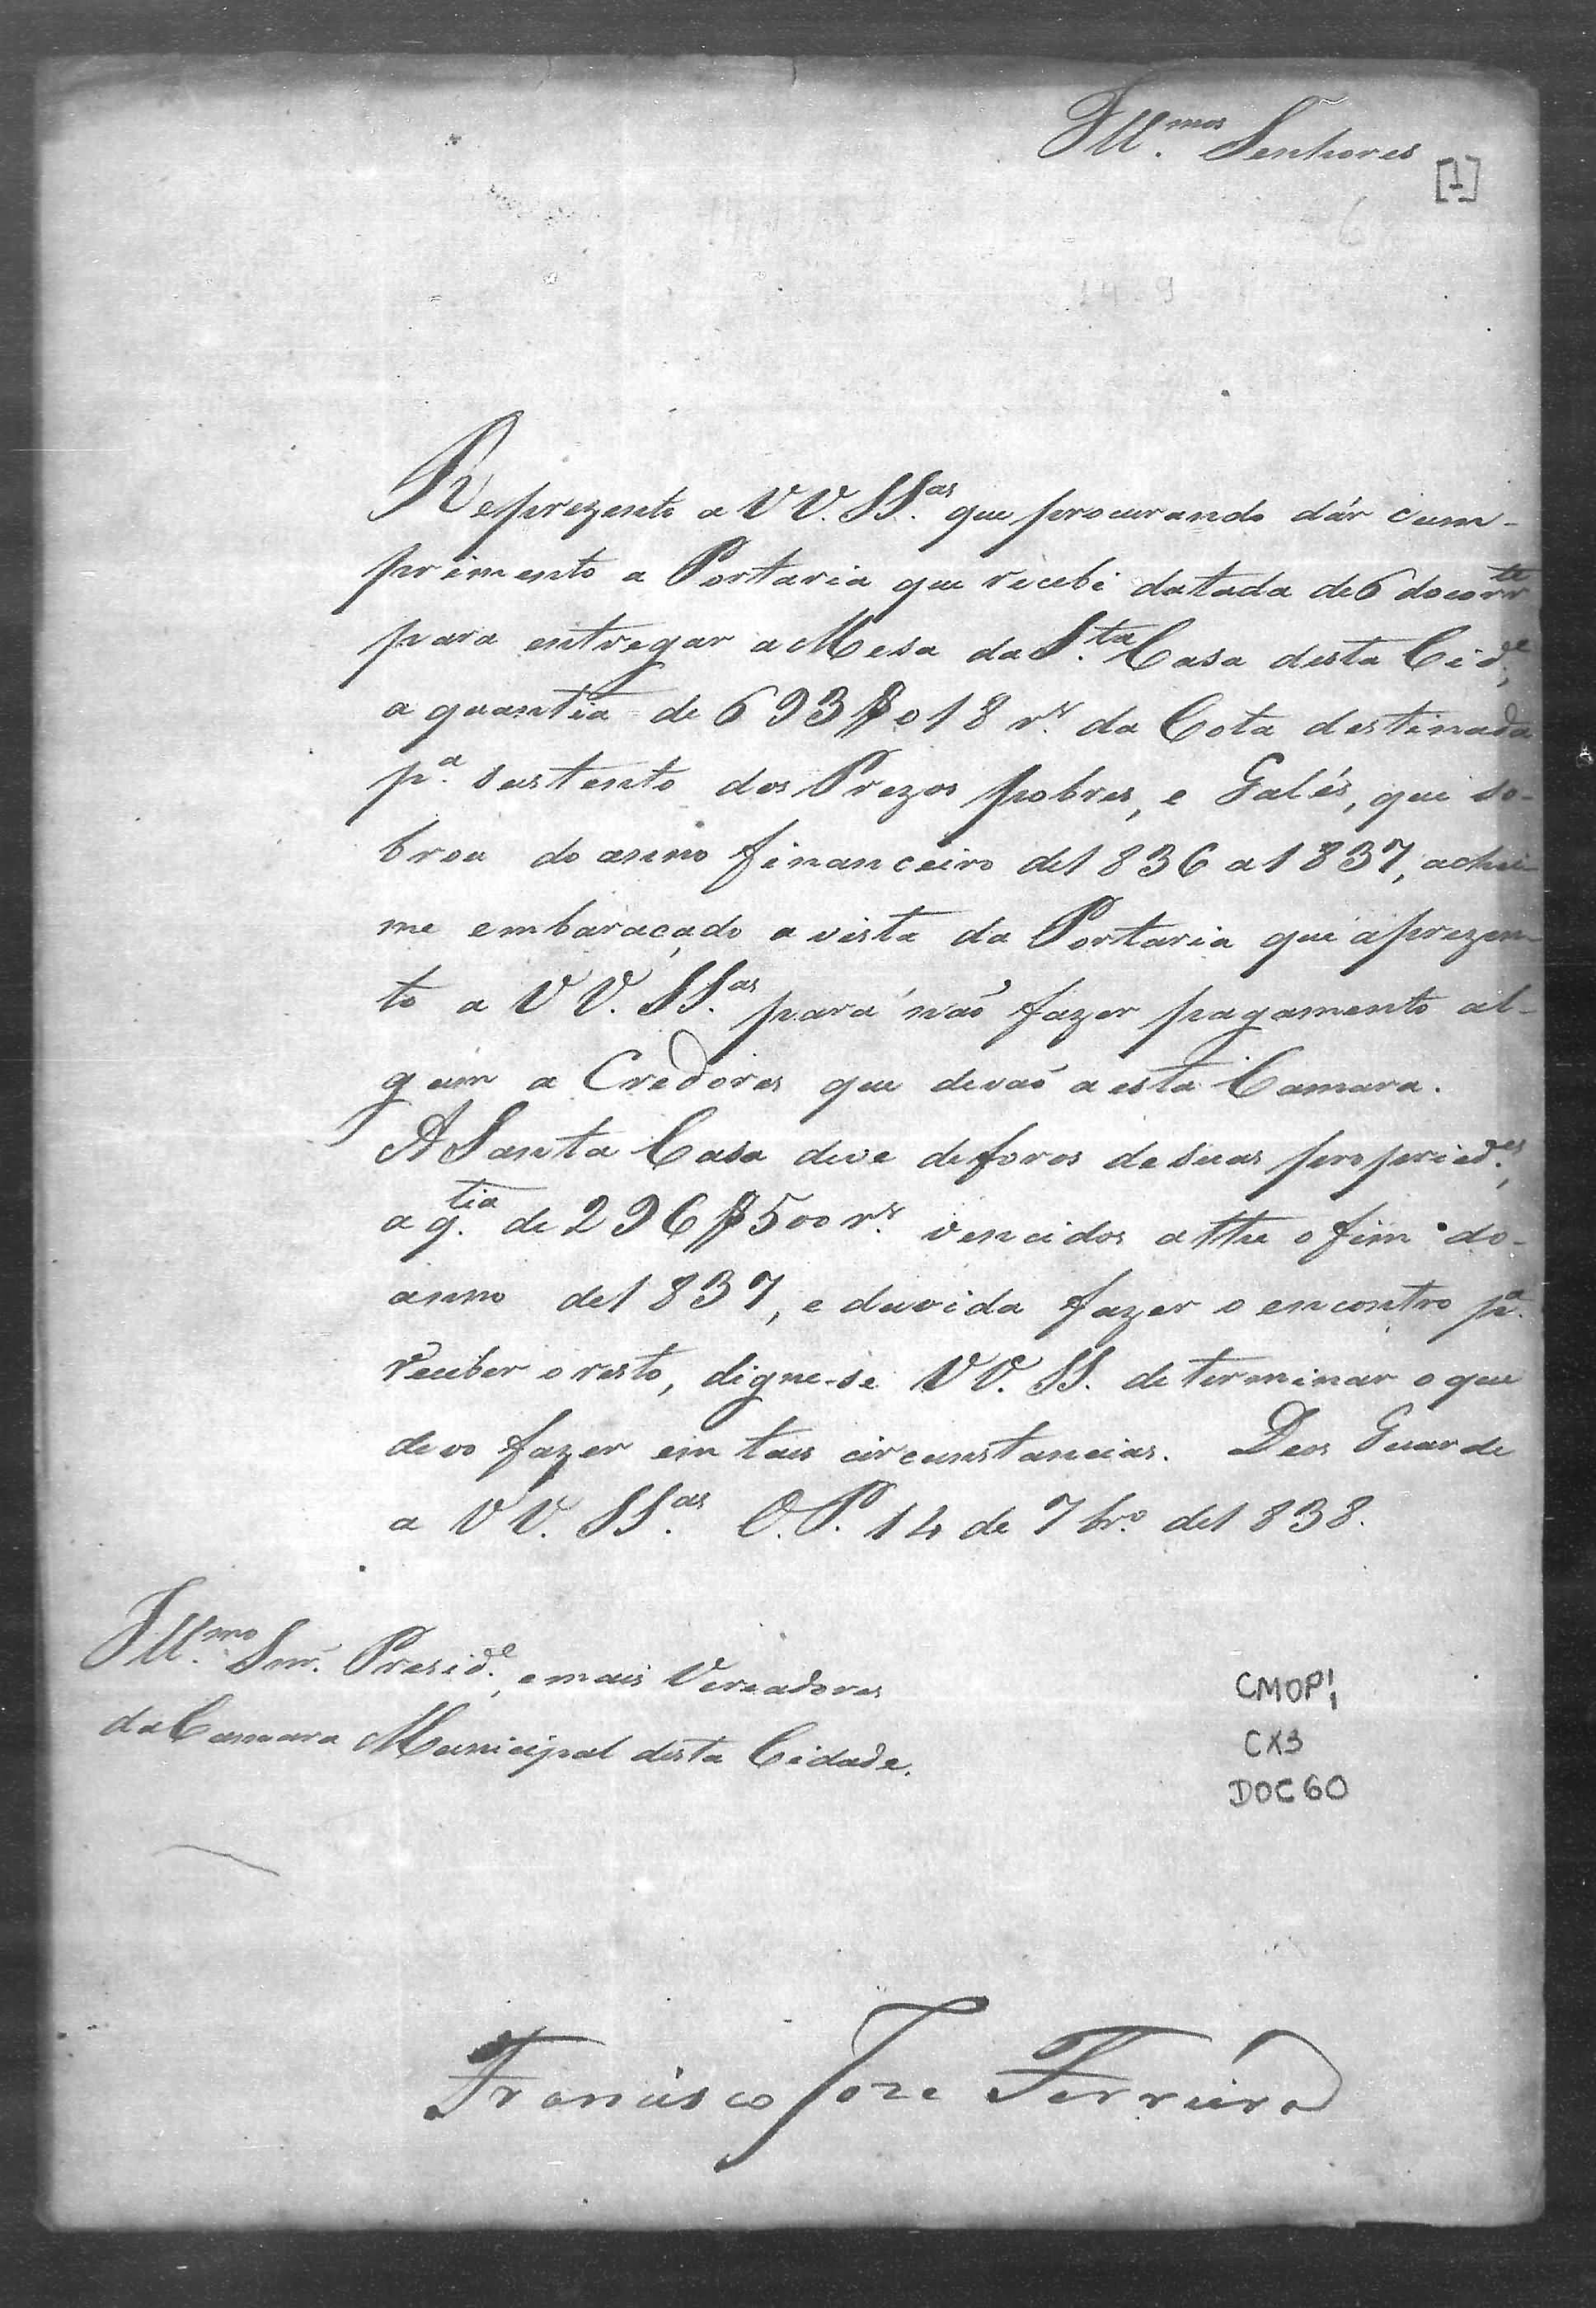 Ill.mos Senhores
[1]
6
14-9
Reprezento a VV. SS.as que procurando dár cum-
primento a Portaria que recebi datada de 6 do corr.te
para entregar a Mesa da S.ta Casa desta Cid.e,
a quantia de 693$018 r.s da Cota destinada
p.a sustento dos Prezos pobres, e Galés, que so-
brou do anno financeiro de 1836 a 1837, achei-
me embaraçado a vista da Portaria que aprezen-
to a VV. SS.as para não fazer pagamento al-
gum a Credores que devaõ a esta Camara.
A Santa Casa deve de foros de suas propried.es,
a q.tia de 296$500 r.s vencidos atthe o fim do
anno de 1837, e duvida fazer o encontro p.a
receber o resto, digne-se VV. SS. determinar o que
devo fazer em taes circunstancias. Deos Guarde
a VV. SS.as O. P. 14 de 7br.o de 1838.
Ill.mo Snr. Presid.e, e mais Vereadores
da Camara Municipal desta Cidade.
CMOP1
CX3
DOC 60
Francisco Joze Ferreira